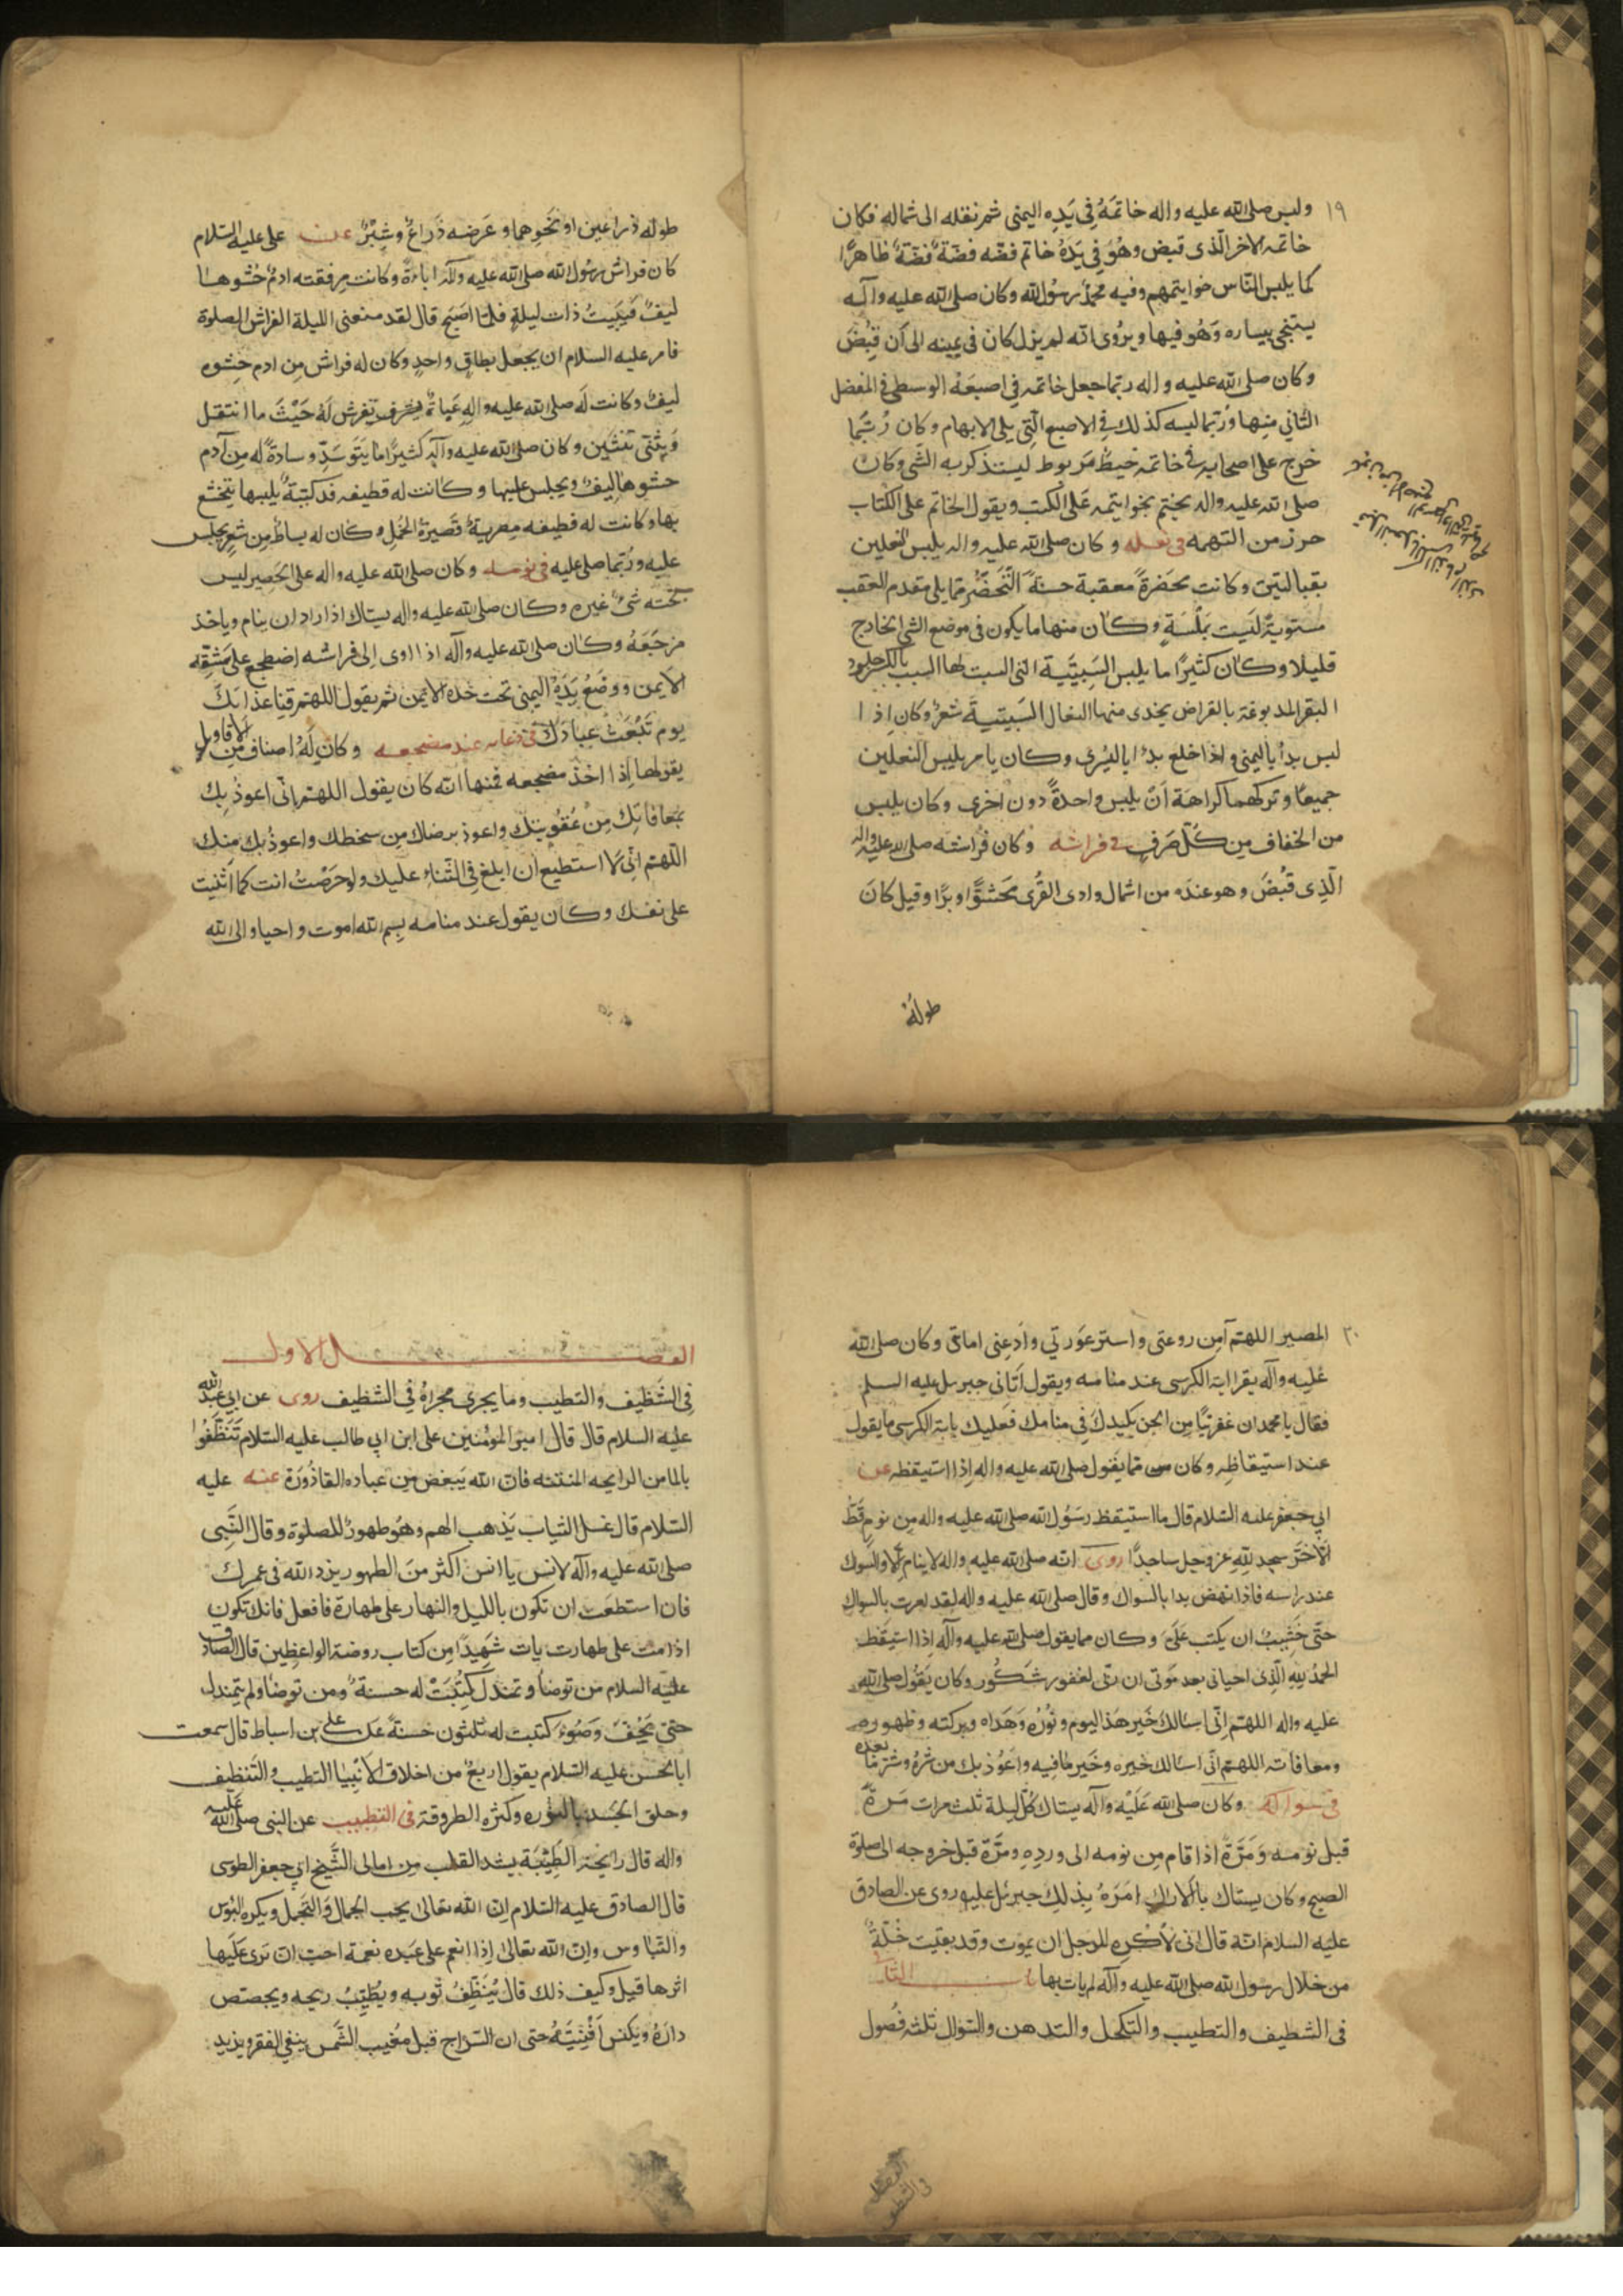 ١٩
ولبس صلى الله عليه واله خاتمه في يده اليمنى ثم نقله الى شماله فكان
خاتمه الاخر الذى قبض وهو في يده خاتم فضه فضة فضة ظاهرا
كما يلبس الناس خواتيمهم وفيه محمد رسول الله وكان صلى الله عليه وآله
يستنجى بيساره وهو فيها ويروى انه لم يزل كان في يمينه الى أن قبض
وكان صلى الله عليه واله ربما جعل خاتمه في اصبعه الوسطى في المفصل
الثاني منها وربما لبسه كذلك في الاصبع التي يلى الابهام وكان ربما
خرج على اصحابه في خاتمه خيط مربوط ليستذكر به الشى وكان
صلى الله عليه واله يختم بخواتيمه على الكتب ويقول الخاتم على الكتاب
حرز من التهمه في نعله وكان صلى الله عليه واله يلبس النعلين
بقبالتين وكانت مخضرة معقبة حسنة التخضر مما يلى مقدم العقب
مستوية ليست بملسنة وكان منها ما يكون في موضع الشى الخارج
قليلا وكان كثيرا ما يلبس السبتية التى السبت لها السبت بالكسر جلود
البقر المدبوغة بالقراض يحذى منها النعال السبتية شعر وكان اذا
لبس بدأ باليمنى واذا خلع بدا باليسرى وكان يامر بلبس النعلين
جميعا وتركهما كراهة ان يلبس واحدة دون اخرى وكان يلبس
من الخفاف من كل ضرف في فراشه وكان فراشه صلى الله عليه واله
الذى قبض وهو عنده من اشمال وادى القرى محشوا وبرا وقيل كان
طوله
طوله ذراعين او نحوهما وعرضه ذراع وشبر عن على عليه السلام
كان فراش رسول الله صلى الله عليه وآله عباءة وكانت مرفقته ادم حشوها
ليف فثنيت ذات ليلة فلما اصبح قال لقد منعنى الليلة الفراش الصلوة
فامر عليه السلام ان يجعل بطاق واحد وكان له فراش من ادم حشوه
ليف وكانت له صلى الله عليه واله عباة تفرش له حيث ما انتقل
ويثنى ثنتين وكان صلى الله عليه وآله كثيرا ما يتوسد وسادة له من آدم
حشوها ليف ويجلس عليها وكانت له قطيفه فدكية يلبسها يتخشع
بها وكانت له قطيفه مصرية قصيرة الخمل وكان له بساط من شعر يجلس
عليه وربما صلى عليه في نومه وكان صلى الله عليه واله على الحصير ليس
تحته شئ غيره وكان صلى الله عليه واله يستاك اذا اراد ان ينام وياخذ
مزجعه وكان صلى الله عليه وآله اذا اوى الى فراشه اضطجع على شقه
الايمن ووضع يده اليمنى تحت خده الايمن ثم يقول اللهم قنا عذابك
يوم تبعث عبادك في دعائه عند مضجعه وكان له اصناف من الاقاويل
يقولها اذا اخذ مضجعه فمنها انه كان يقول اللهم انى اعوذ بك
بمعافاتك من عقوبتك واعوذ برضاك من سخطك واعوذ بك منك
اللهم انى لا استطيع ان ابلغ في الثناء عليك ولو حرصت انت كما اثنيت
على نفسك وكان يقول عند منامه بسم الله اموت واحيا والى الله
٢٠
المصير اللهم آمن روعتى واستر عورتي واد عنى امانتى وكان صلى الله
عليه وآله يقرا اية الكرسى عند منامه ويقول اتانى جبرئيل عليه السلم
فقال يا محمد ان عفريتا من الجن يكيدك في منامك فعليك باية الكرسى ما يقول
عند استيقاظه وكان مما يقول صلى الله عليه واله اذا استيقظ عن
ابي جعفر عليه السلام قال ما استيقظ رسول الله صلى الله عليه واله من نوم قط
الا خر سجد لله عز وجل ساجدا روى انه صلى الله عليه واله لا ينام الا والسواك
عند راسه فاذا نهض بدا بالسواك وقال صلى الله عليه واله لقد امرت بالسواك
حتى خشيت ان يكتب على وكان مما يقول صلى الله عليه وآله اذا استيقظ
الحمد لله الذى احيانى بعد موتى ان ربى لغفور شكور وكان يقول صلى الله
عليه واله اللهم انى اسالك خير هذا اليوم ونوره وهداه وبركته وطهوره
ومعافاته اللهم انى اسالك خيره وخير ما فيه واعوذ بك من شره وشر ما بعده
في سواكه وكان صلى الله عليه وآله يستاك كل ليلة ثلث مرات مرة
قبل نومه ومرة اذا قام من نومه الى ورده ومرة قبل خروجه الى صلوة
الصبح وكان يستاك بالاراك امره بذلك جبرئيل عليه روى عن الصادق
عليه السلام انه قال انى لاكره للرجل ان يموت وقد بقيت خلة
من خلال رسول الله صلى الله عليه وآله لم يات بها
في التنظيف والتطيب والتكحل والتدهن والسواك ثلثه فصول
الفصل الاول
في التنظيف والتطيب وما يجرى مجراه في التنظيف روى عن ابي عبد الله
عليه السلام قال قال امير المؤمنين على ابن ابي طالب عليه السلام تنظفوا
بالما من الرايحه المنتنه فان الله يبغض من عباده القاذورة عنه عليه
السلام قال غسل الثياب يذهب الهم وهو طهور للصلوة وقال النبى
صلى الله عليه وآله لانس يا انس اكثر من الطهور يزد الله في عمرك
فان استطعت ان تكون بالليل والنهار على طهارة فافعل فانك تكون
اذا مت على طهارت يات شهيدا من كتاب روضة الواعظين قال الصادق
عليه السلام من توضأ وتمندل كتبت له حسنة ومن توضا ولم يتمندل
حتى يجف وضوءه كتبت له ثلثون حسنة عن على بن اسباط قال سمعت
ابا الحسن عليه السلام يقول اربع من اخلاق الانبيا التطيب والتنظيف
وحلق الجسد بالنوره وكثره الطروقة في التطييب عن النبى صلى الله عليه
واله قال رايحة الطيبة يشد القلب من امالى الشيخ ابي جعفر الطوسى
قال الصادق عليه السلام ان الله تعالى يحب الجمال والتجمل ويكره البؤس
والتباوس وان الله تعالى اذا انعم على عبده نعمة احب ان ترى عليها
اثرها قيل وكيف ذلك قال ينظف ثوبه ويطيب ريحه ويجصص
داره ويكنس افنيته حتى ان السراج قبل مغيب الشمس ينفى الفقر ويزيد